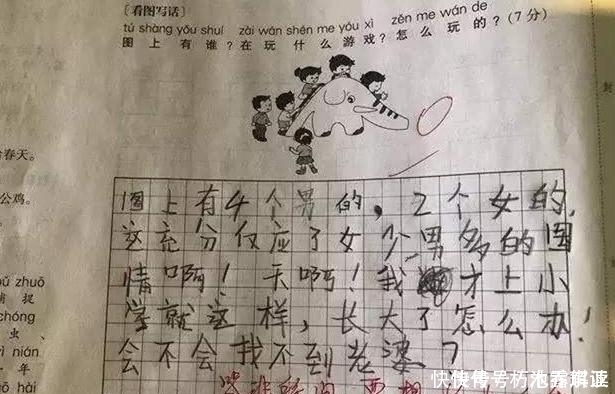 [看图写话]
tú shàng yǒu shuí zài wán shén me yóu xì zěn me wán de
图上有谁？在玩什么游戏？怎么玩的？(7分)
春天。
公鸡。
zhuō
捕捉
chóng
虫、
nián
一年
hǎi
封
图上有4个男的，2个女的，
这充分仅应了女少男多的国
情啊！天啊！我才上小
学就这样，长大了怎么办！
会不会找不到老婆？